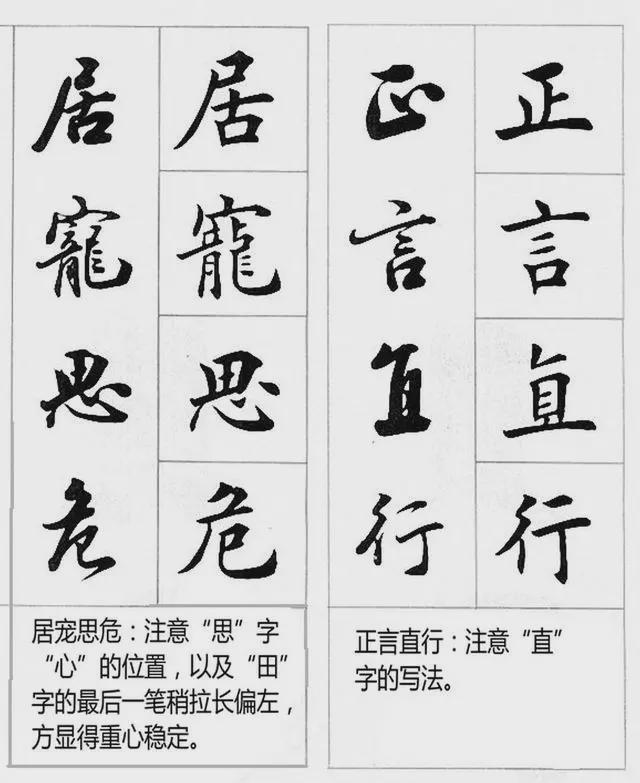 正言直行
正言直行
居寵思危
居寵思危
正言直行：注意“直”
字的写法。
居宠思危：注意“思”字
“心”的位置，以及“田”
字的最后一笔稍拉长偏左，
方显得重心稳定。